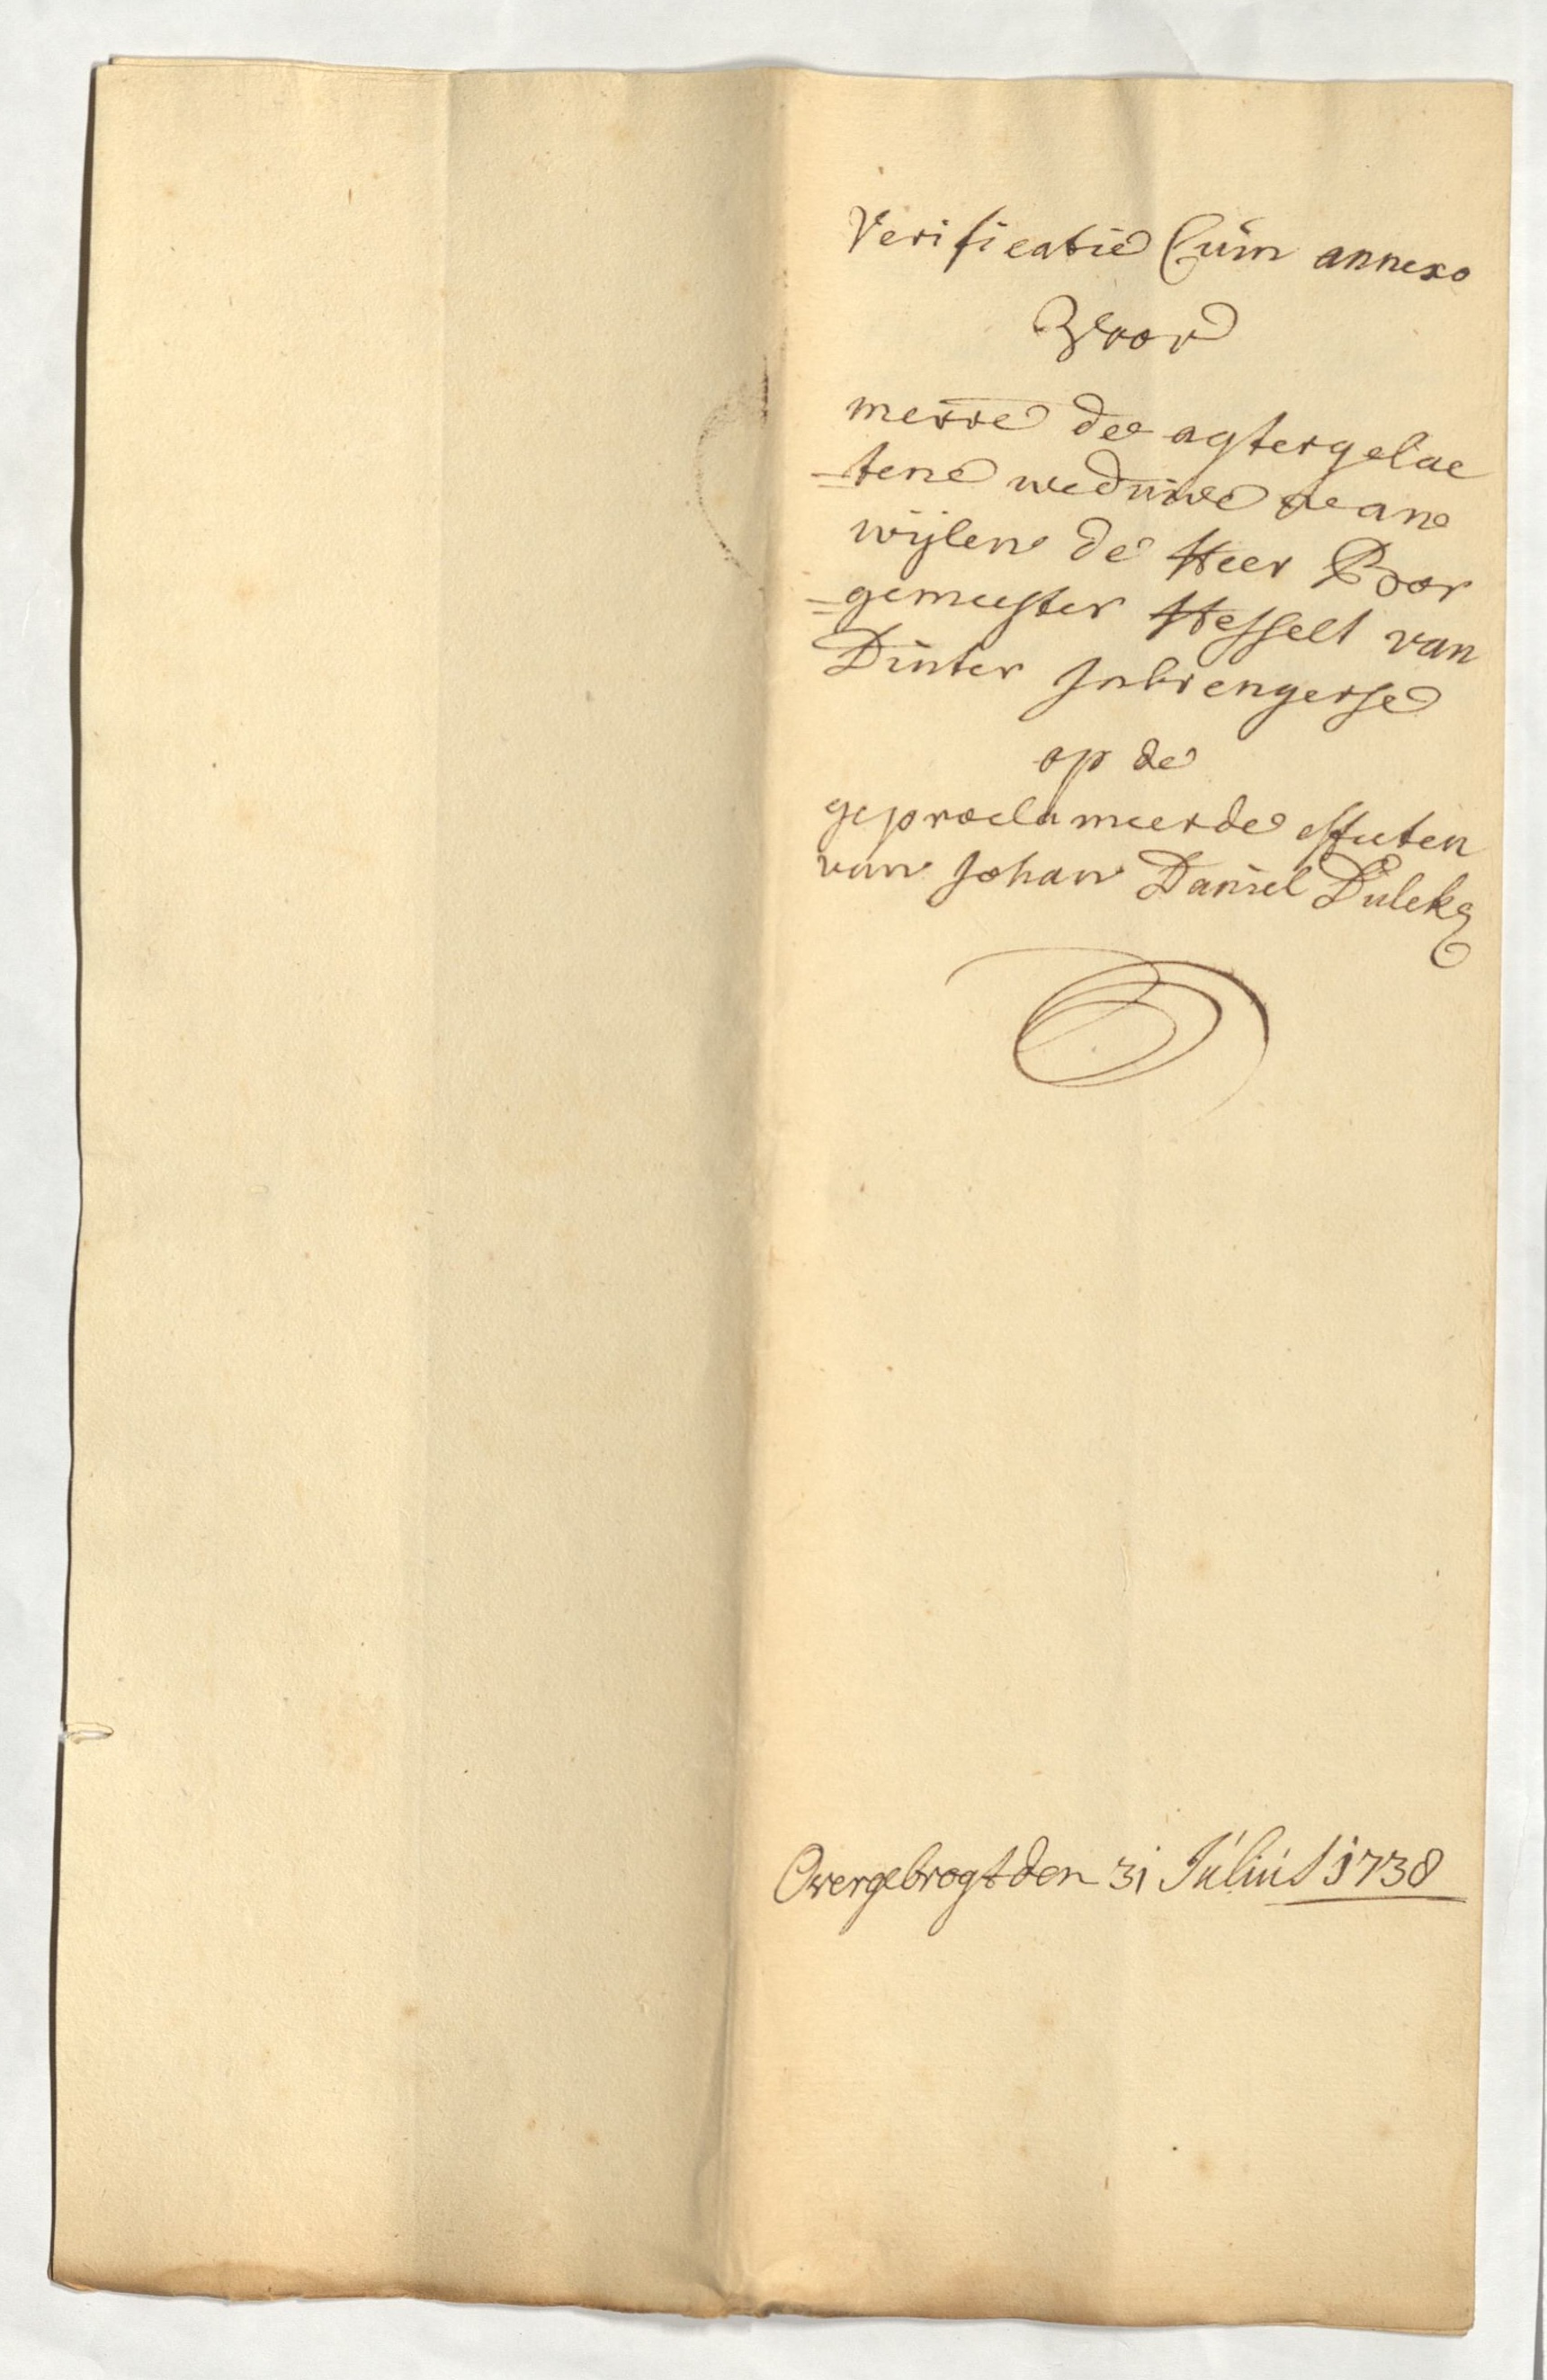 Verificatie Cum annexo
Voor
mevrẽ de agtergelae
=tene weduwe van
wijlen de Heer Bor
=gemeester Hesselt van
Dinter Inbrengerse
op de
geproclameerde effecten
van Johan Daniel Dulcks
Overgebrogt den 31 Julius 1738